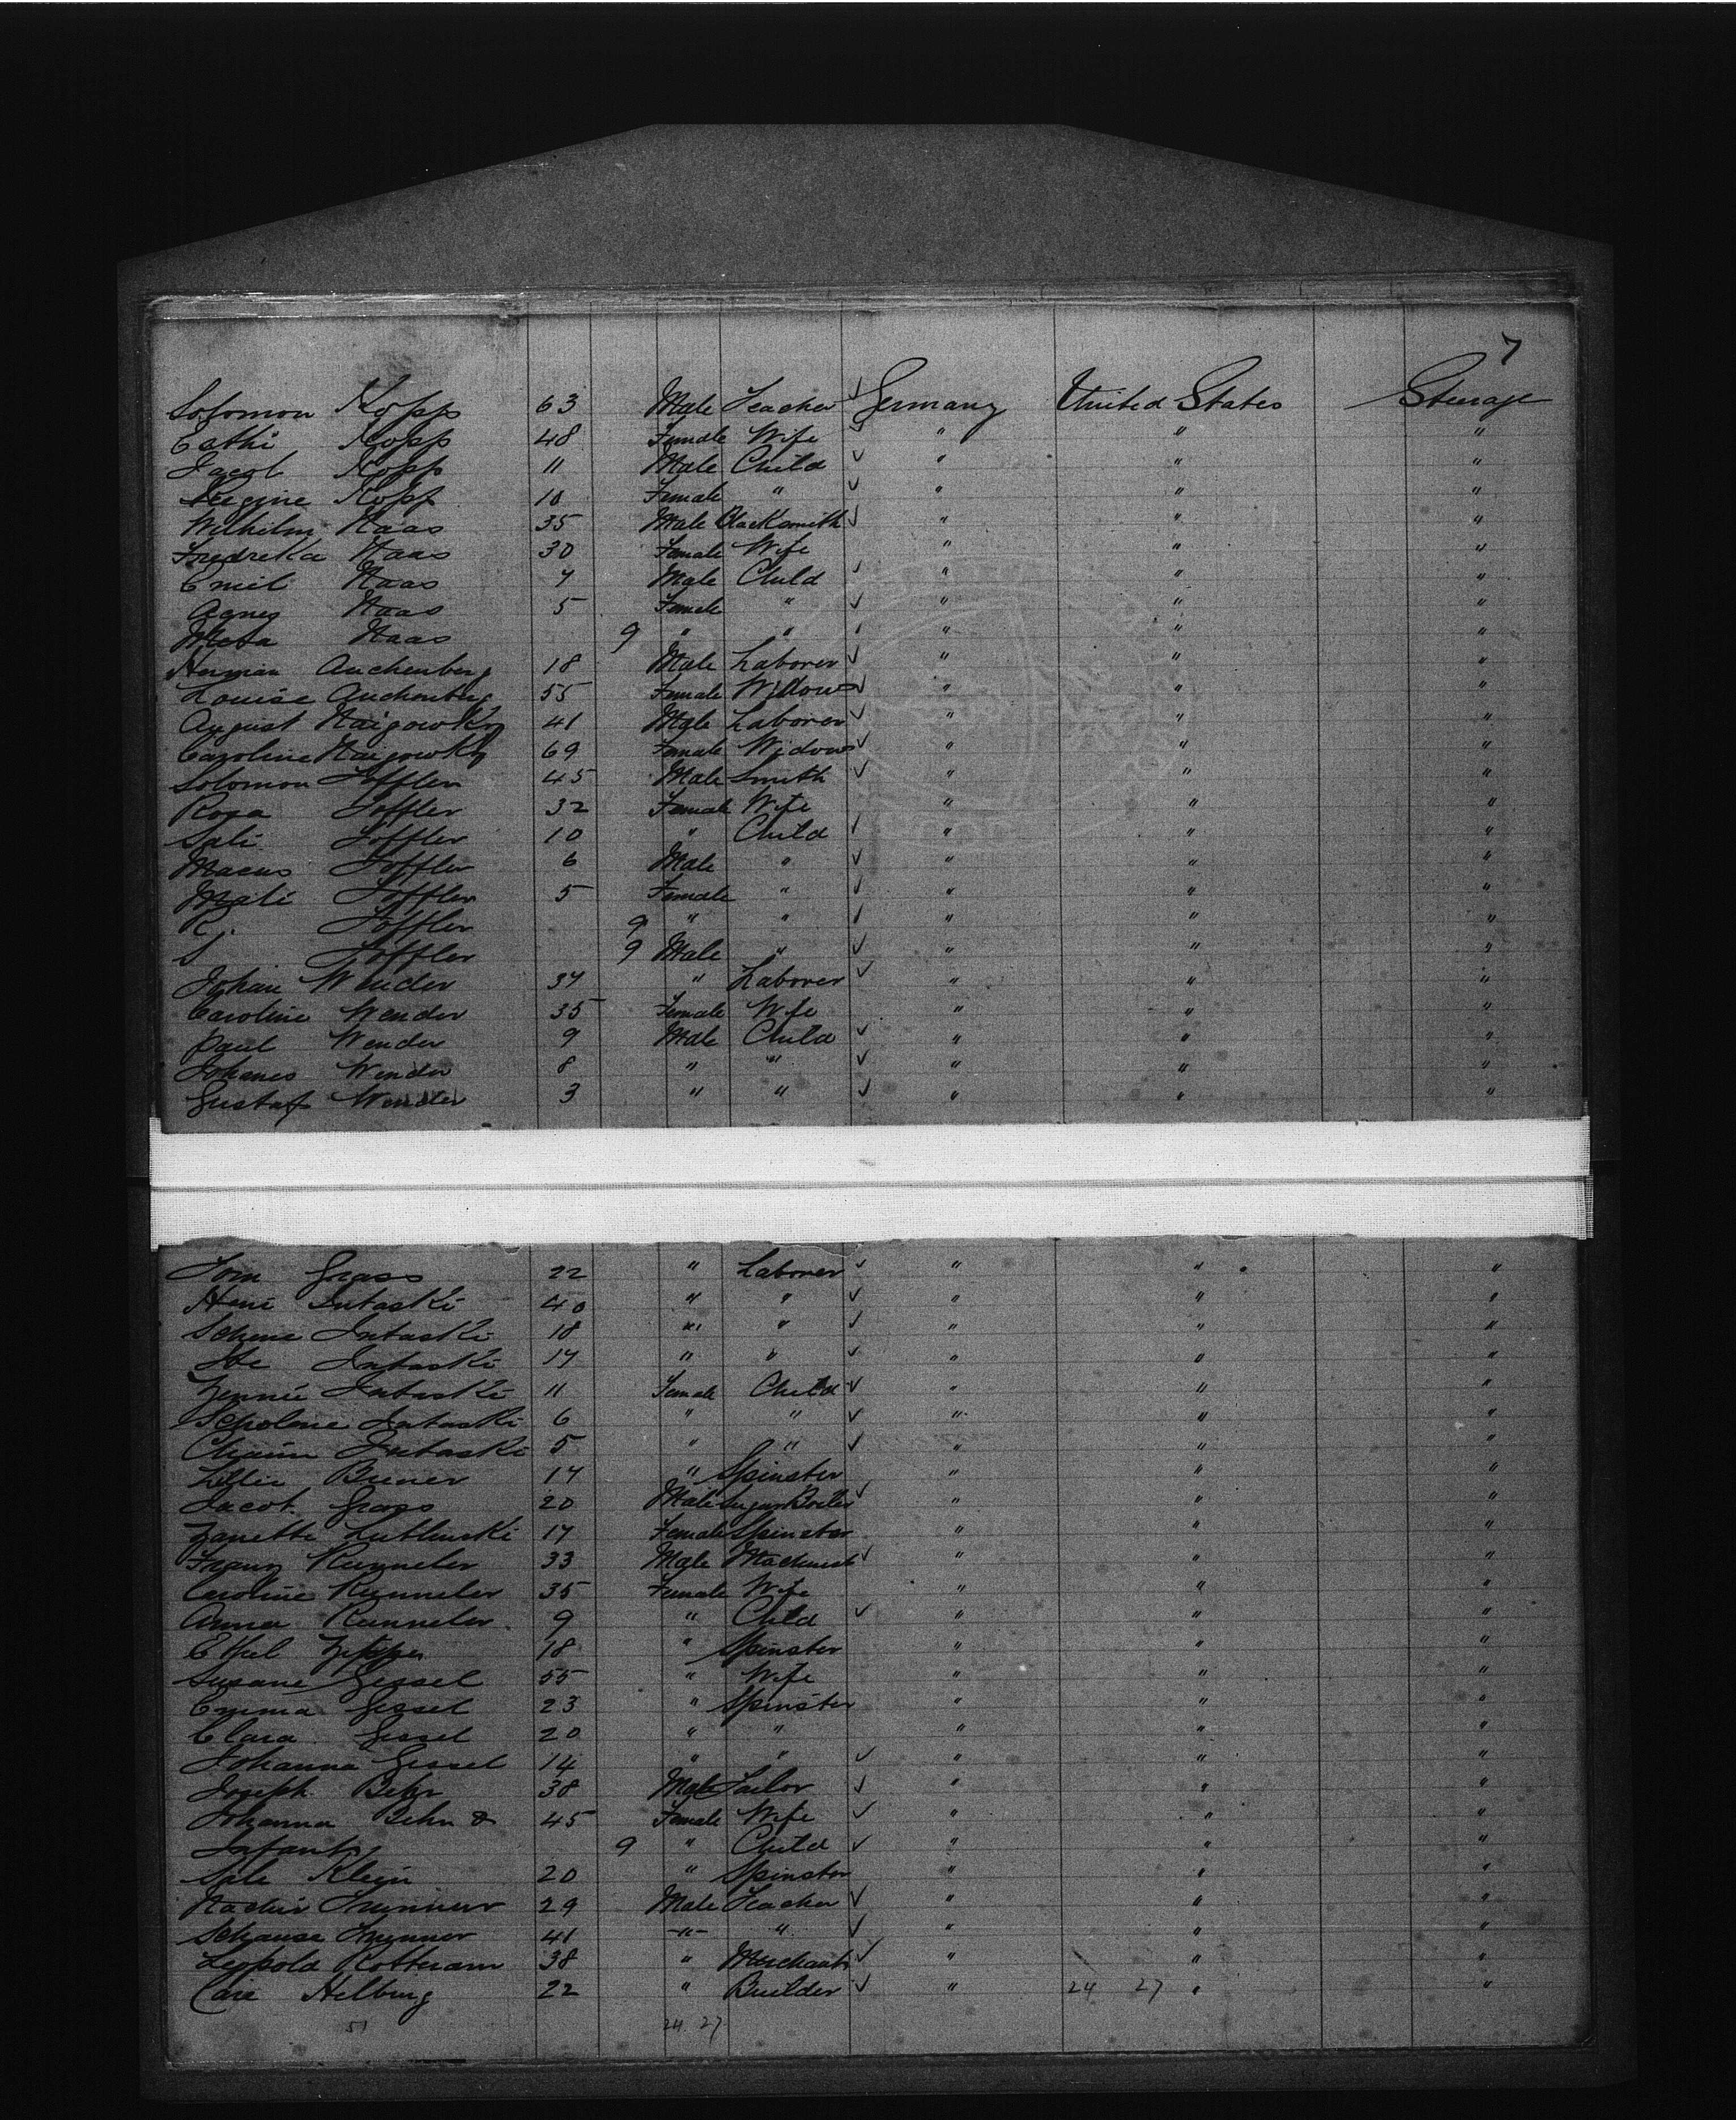 7
Solomon Kopp 63 Male Teacher ✓ Germany United States Steerage
Cathi Kopp 48 Female Wife ✓ " " "
Jacob Kopp 11 Male Child ✓ " " "
Regine Kopp 10 Female " ✓ " " "
Wilhelm Haas 35 Male Blacksmith ✓ " " "
Fredreka Haas 30 Female Wife " " "
Emil Haas 7 Male Child ✓ " " "
Agnes Haas 5 Female " ✓ " " "
Meta Haas 9 " " ✓ " " "
Herman Auchenberg 18 Male Laborer ✓ " " "
Louise Auchenberg 55 Female Widow ✓ " " "
August Naigowsky 41 Male Laborer ✓ " " "
Caroline Naigowsky 69 Female Widow ✓ " " "
Solomon Loffler 45 Male Smith ✓ " " "
Rosa Loffler 32 Female Wife " " "
Sali Loffler 10 " Child ✓ " " "
Marcus Loffler 6 Male " ✓ " " "
Mali Loffler 5 Female " ✓ " " "
R. Loffler 9 " " ✓ " " "
S Loffler 9 Male " ✓ " " "
Johan Wender 37 " Laborer ✓ " " "
Caroline Wender 35 Female Wife " " "
Paul Wender 9 Male Child ✓ " " "
Johanes Wender 8 " " ✓ " " "
Gustaf Wender 3 " " ✓ " " "
Tom Grass 22 " Laborer ✓ " " "
Intaski 40 " " ✓ " " "
Schene Intaski 18 " " ✓ " " "
Intaski 17 " " ✓ " " "
Jennie Intaski 11 Female Child ✓ " " "
Scholme Intaski 6 " " ✓ " " "
Chaim Intaski 5 " " ✓ " " "
Lillie Bruner 17 " Spinster " " "
Jacob Grass 20 Male Sugar Boiler ✓ " " "
Janette Lublinski 17 Female Spinster " " "
Franz Kunneler 33 Male Machinist ✓ " " "
Caroline Kunneler 35 Female Wife " " "
Anna Kunneler 9 " Child ✓ " " "
Ethel 18 " Spinster " " "
Susane Gessel 55 " Wife " " "
Emma Gessel 23 " Spinster " " "
Clara Gessel 20 " " " " "
Johanna Gessel 14 " " ✓ " " "
Joseph Behr 38 Male Tailor ✓ " " "
Johanna Behn & 45 Female Wife ✓ " " "
Infant 9 " Child ✓ " " "
Sale Klein 20 " Spinster " " "
29 Male Teacher ✓ " " "
41 " " ✓ " " "
Leopold Kottmann 38 " Merchant ✓ " " "
Helburg 22 " Builder ✓ " 24 27 " "
51 24. 27